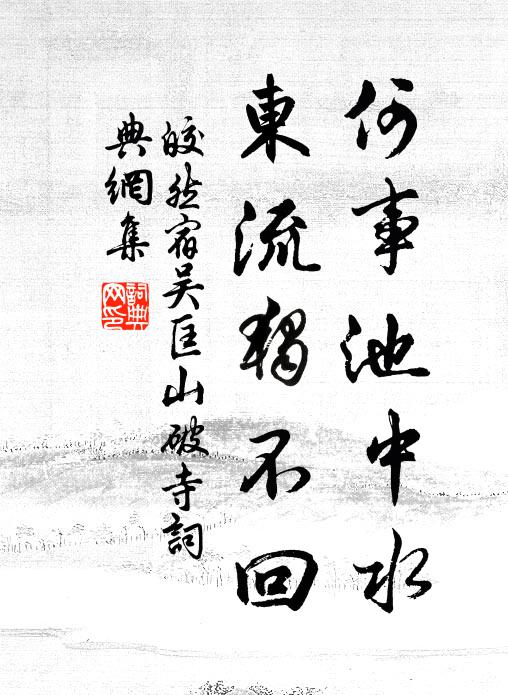 何事池中水
東流獨不回
皎然宿吴匡山破寺詞
典網集
詞典
网印